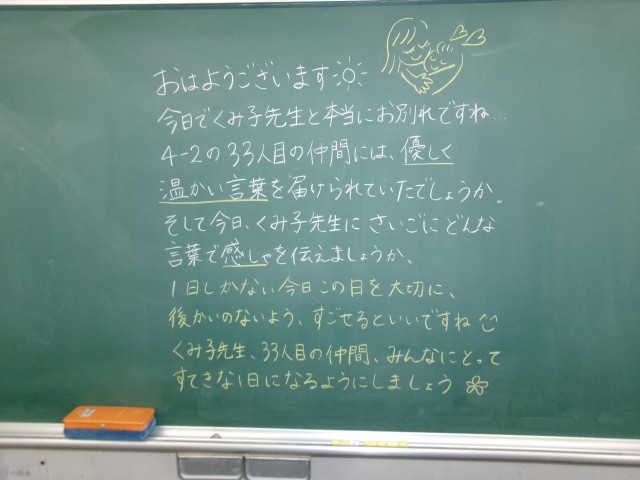 おはようございます
今日でくみ子先生と本当にお別れですね…
4-2の33人目の仲間には、優しく
温かい言葉を届けられていたでしょうか。
そして今日、くみ子先生にさいごにどんな
言葉で感しゃを伝えましょうか。
1日しかない今日この日を大切に、
後かいのないよう、すごせるといいですね
くみ子先生、33人目の仲間、みんなにとって
すてきな1日になるようにしましょう